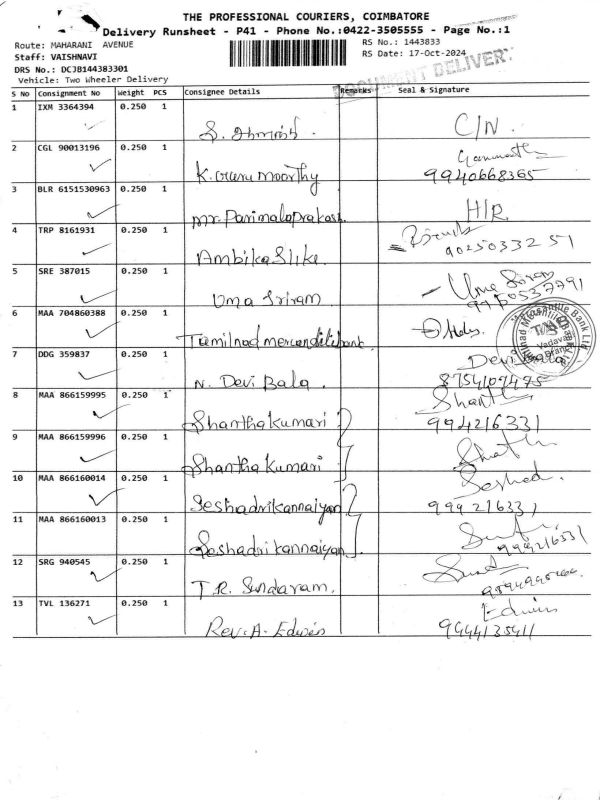 THE PROFESSIONAL COURIERS, COIMBATORE
Delivery Runsheet - P41 - Phone No.:0422-3505555 - Page No.:1
Route: MAHARANI AVENUE
RS No.: 1443833
Staff: VAISHNAVI
RS Date: 17-Oct-2024
DRS No.: DCJB144383301
Vehicle: Two Wheeler Delivery
DOCUMENT DELIVERY
S No Consignment No Weight PCS Consignee Details Remarks Seal & Signature
1 IXM 3364394 0.250 1
C/N.
2 CGL 90013196 0.250 1
K. Guru moorthy 9940668365
3 BLR 6151530963 0.250 1
mr. Parimalaprakash H/R
4 TRP 8161931 0.250 1
Ambika Slike 9025033251
5 SRE 387015 0.250 1
Uma Sriram Uma Sriram
6 MAA 704860388 0.250 1
Tamilnad mercandilebank
7 DDG 359837 0.250 1
N. Devi Bala. Devi Bala
8754107495
8 MAA 866159995 0.250 1
Shantha Kumari 994216331
9 MAA 866159996 0.250 1
Shantha Kumari
10 MAA 866160014 0.250 1
Seshadrikannaiyan 999216331
11 MAA 866160013 0.250 1
Seshadrikannaiyan 999216331
12 SRG 940545 0.250 1
T.R. Sundaram.
13 TVL 136271 0.250 1
Rev. A. Edwin Edwin
9444135411